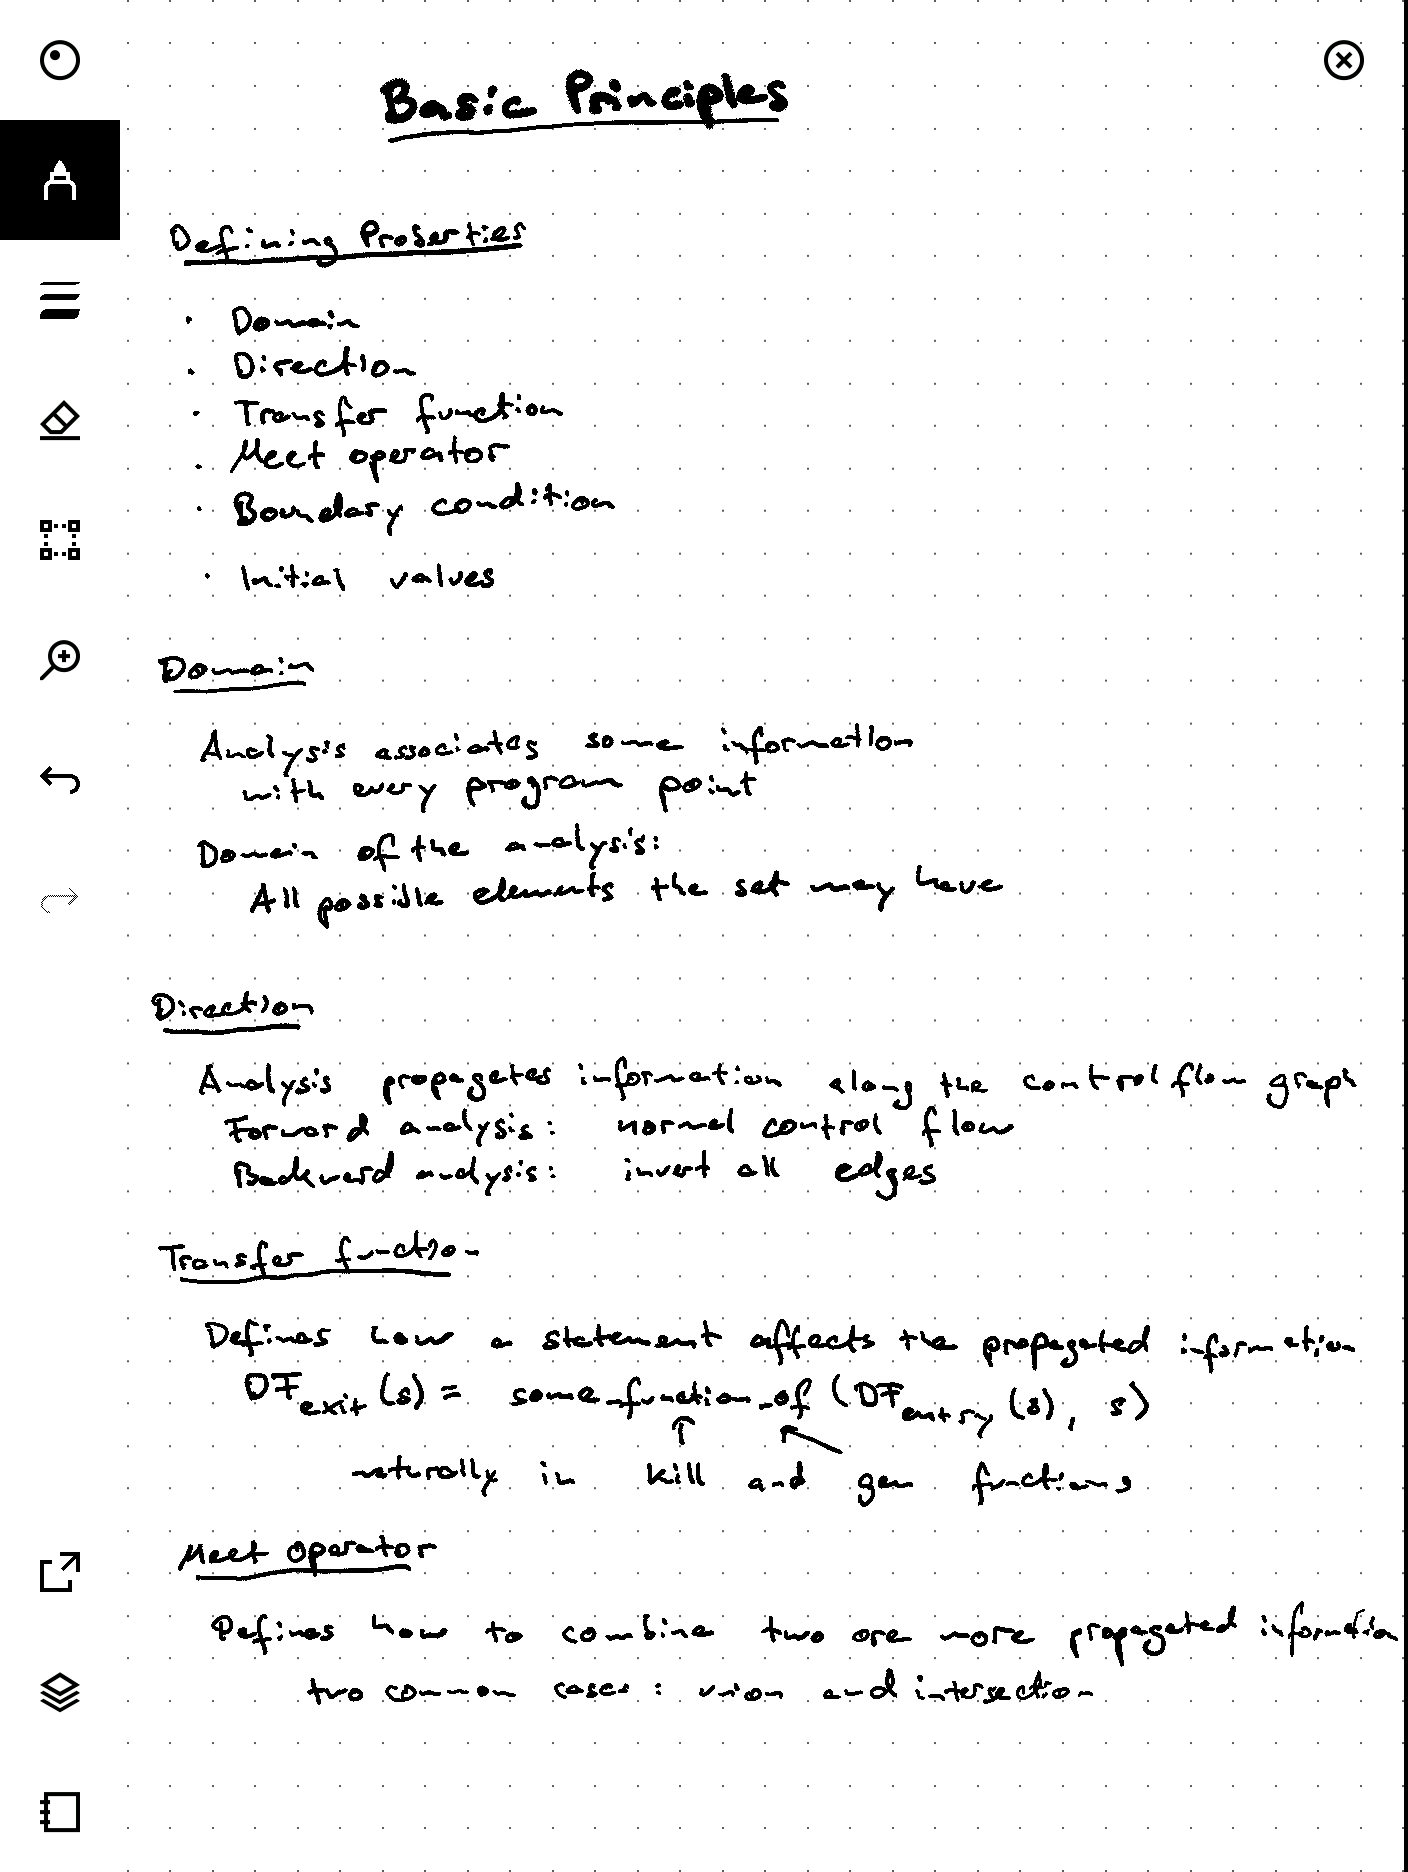 Basic Principles
Defining Properties
· Domain
· Direction
· Transfer function
· Meet operator
· Boundary condition
· Initial values
Domain
Analysis associates some information
with every program point
Domain of the analysis:
All possible elements the set may have
Direction
Analysis propagates information along the control flow graph
Forward analysis: normal control flow
Backward analysis: invert all edges
Transfer function
Defines how a statement affects the propagated information
DF_exit (s) = some_function_of (DF_entry (s), s)
naturally in kill and gen functions
Meet operator
Defines how to combine two ore more propagated information
two common cases: union and intersection